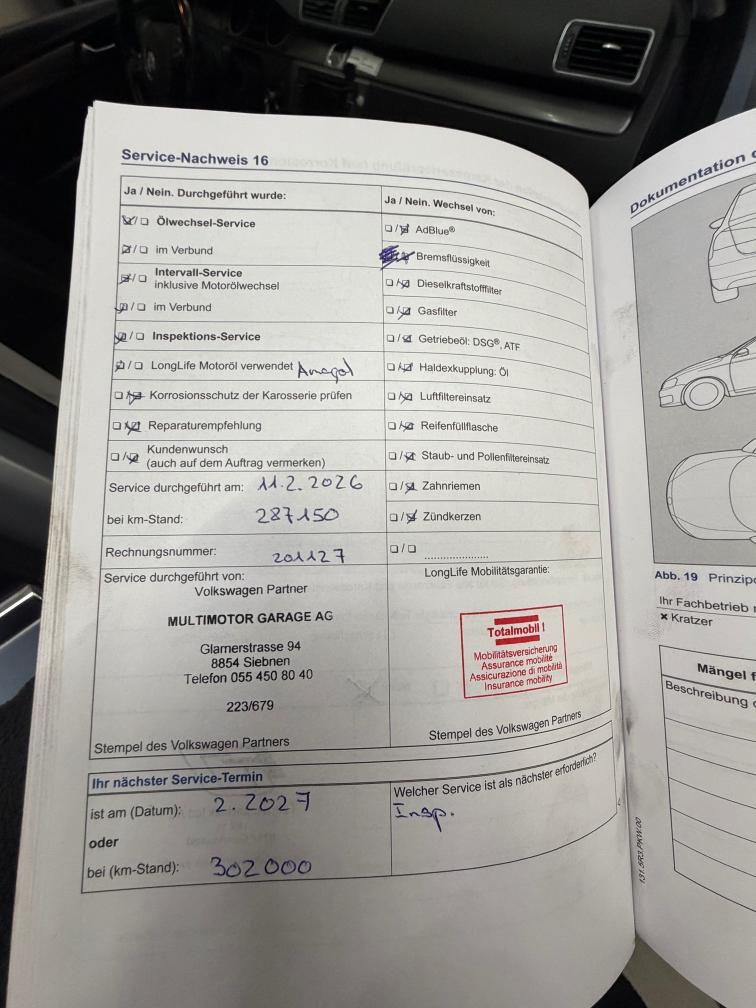 Service-Nachweis 16
Ja / Nein. Durchgeführt wurde:
Ölwechsel-Service
im Verbund
Intervall-Service
inklusive Motorölwechsel
im Verbund
Inspektions-Service
LongLife Motoröl verwendet
Korrosionsschutz der Karosserie prüfen
Reparaturempfehlung
Kundenwunsch
(auch auf dem Auftrag vermerken)
Service durchgeführt am: 11.2.2026
bei km-Stand: 287150
Rechnungsnummer: 201127
Service durchgeführt von:
Volkswagen Partner
MULTIMOTOR GARAGE AG
Glarnerstrasse 94
8854 Siebnen
Telefon 055 450 80 40
223/679
Stempel des Volkswagen Partners
Ja / Nein. Wechsel von:
AdBlue®
Bremsflüssigkeit
Dieselkraftstofffilter
Gasfilter
Getriebeöl: DSG®, ATF
Haldexkupplung: Öl
Luftfiltereinsatz
Reifenfüllflasche
Staub- und Pollenfiltereinsatz
Zahnriemen
Zündkerzen
LongLife Mobilitätsgarantie:
Totalmobil!
Mobilitätsversicherung
Assurance mobilité
Assicurazione di mobilità
Insurance mobility
Stempel des Volkswagen Partners
Ihr nächster Service-Termin
ist am (Datum): 2.2027
oder
bei (km-Stand): 302000
Welcher Service ist als nächster erforderlich?
Insp.
131.5R3.PKW.00
Dokumentation
Abb. 19
Ihr Fachbetrieb
× Kratzer
Mängel
Beschreibung